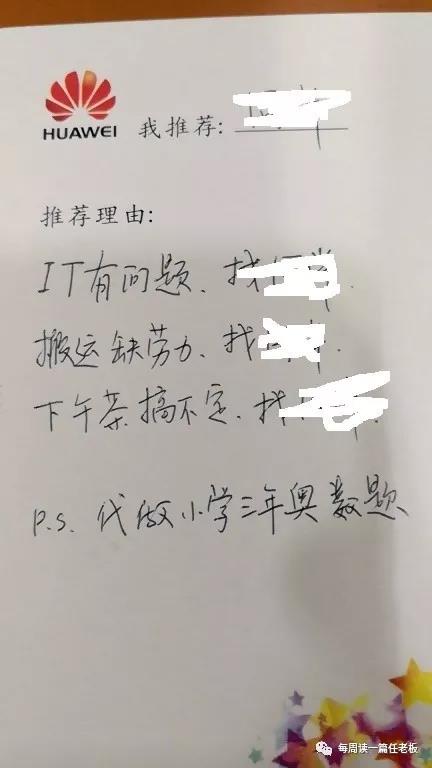 HUAWEI
我推荐:
推荐理由:
IT有问题、找
搬运缺劳力、找
下午茶搞不定、找
P.S. 代做小学三年奥数题
每周读一篇任老板